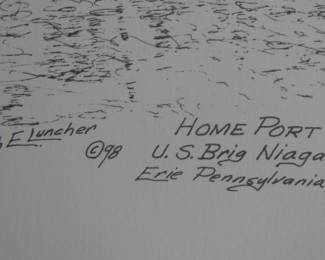 E Luncher
©98
HOME PORT
U.S. Brig Niaga
Erie Pennsylvania